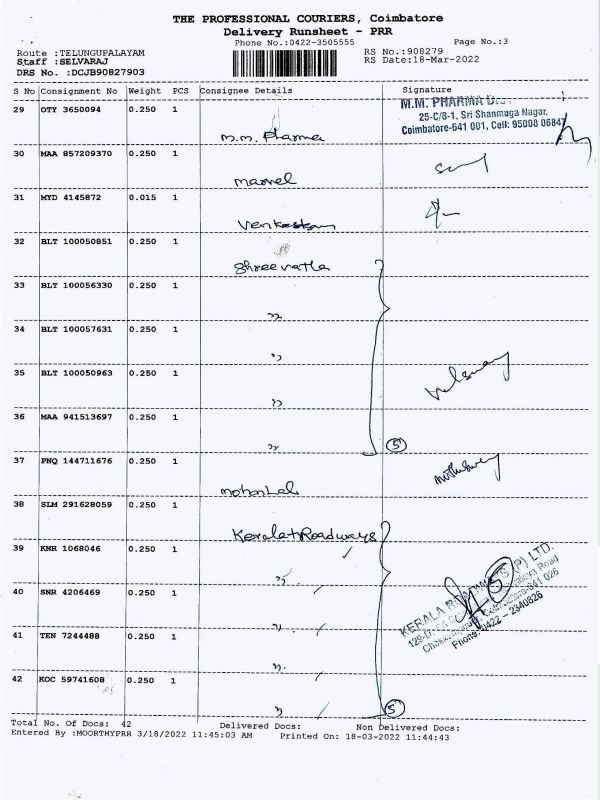 THE PROFESSIONAL COURIERS, Coimbatore
Delivery Runsheet - PRR
Phone No.:0422-3505555
Page No.:3
Route :TELUNGUPALAYAM
RS No.:908279
Staff :SELVARAJ
RS Date:18-Mar-2022
DRS No. :DCJB90827903
S No Consignment No Weight PCS Consignee Details Signature
29 OTY 3650094 0.250 1
M.M. PHARMA
25-C/8-1, Sri Shanmuga Nagar,
Coimbatore-641 001, Cell: 95008 06847
M.M. Pharma
30 MAA 857209370 0.250 1
marvel
31 MYD 4145872 0.015 1
32 BLT 100050851 0.250 1
33 BLT 100056330 0.250 1
"
34 BLT 100057631 0.250 1
"
35 BLT 100050963 0.250 1
"
36 MAA 941513697 0.250 1
"
5
37 PNQ 144711676 0.250 1
mohanLal
38 SLM 291628059 0.250 1
Kerala Roadways
39 KNR 1068046 0.250 1
"
KERALA ROADWAYS (P) LTD.
5
40 SNR 4206469 0.250 1
Phone: 0422 - 2340826
"
41 TEN 7244488 0.250 1
"
42 KOC 59741608 0.250 1
"
5
Total No. Of Docs: 42 Delivered Docs: Non Delivered Docs:
Entered By :MOORTHYPRR 3/18/2022 11:45:03 AM Printed On: 18-03-2022 11:44:43